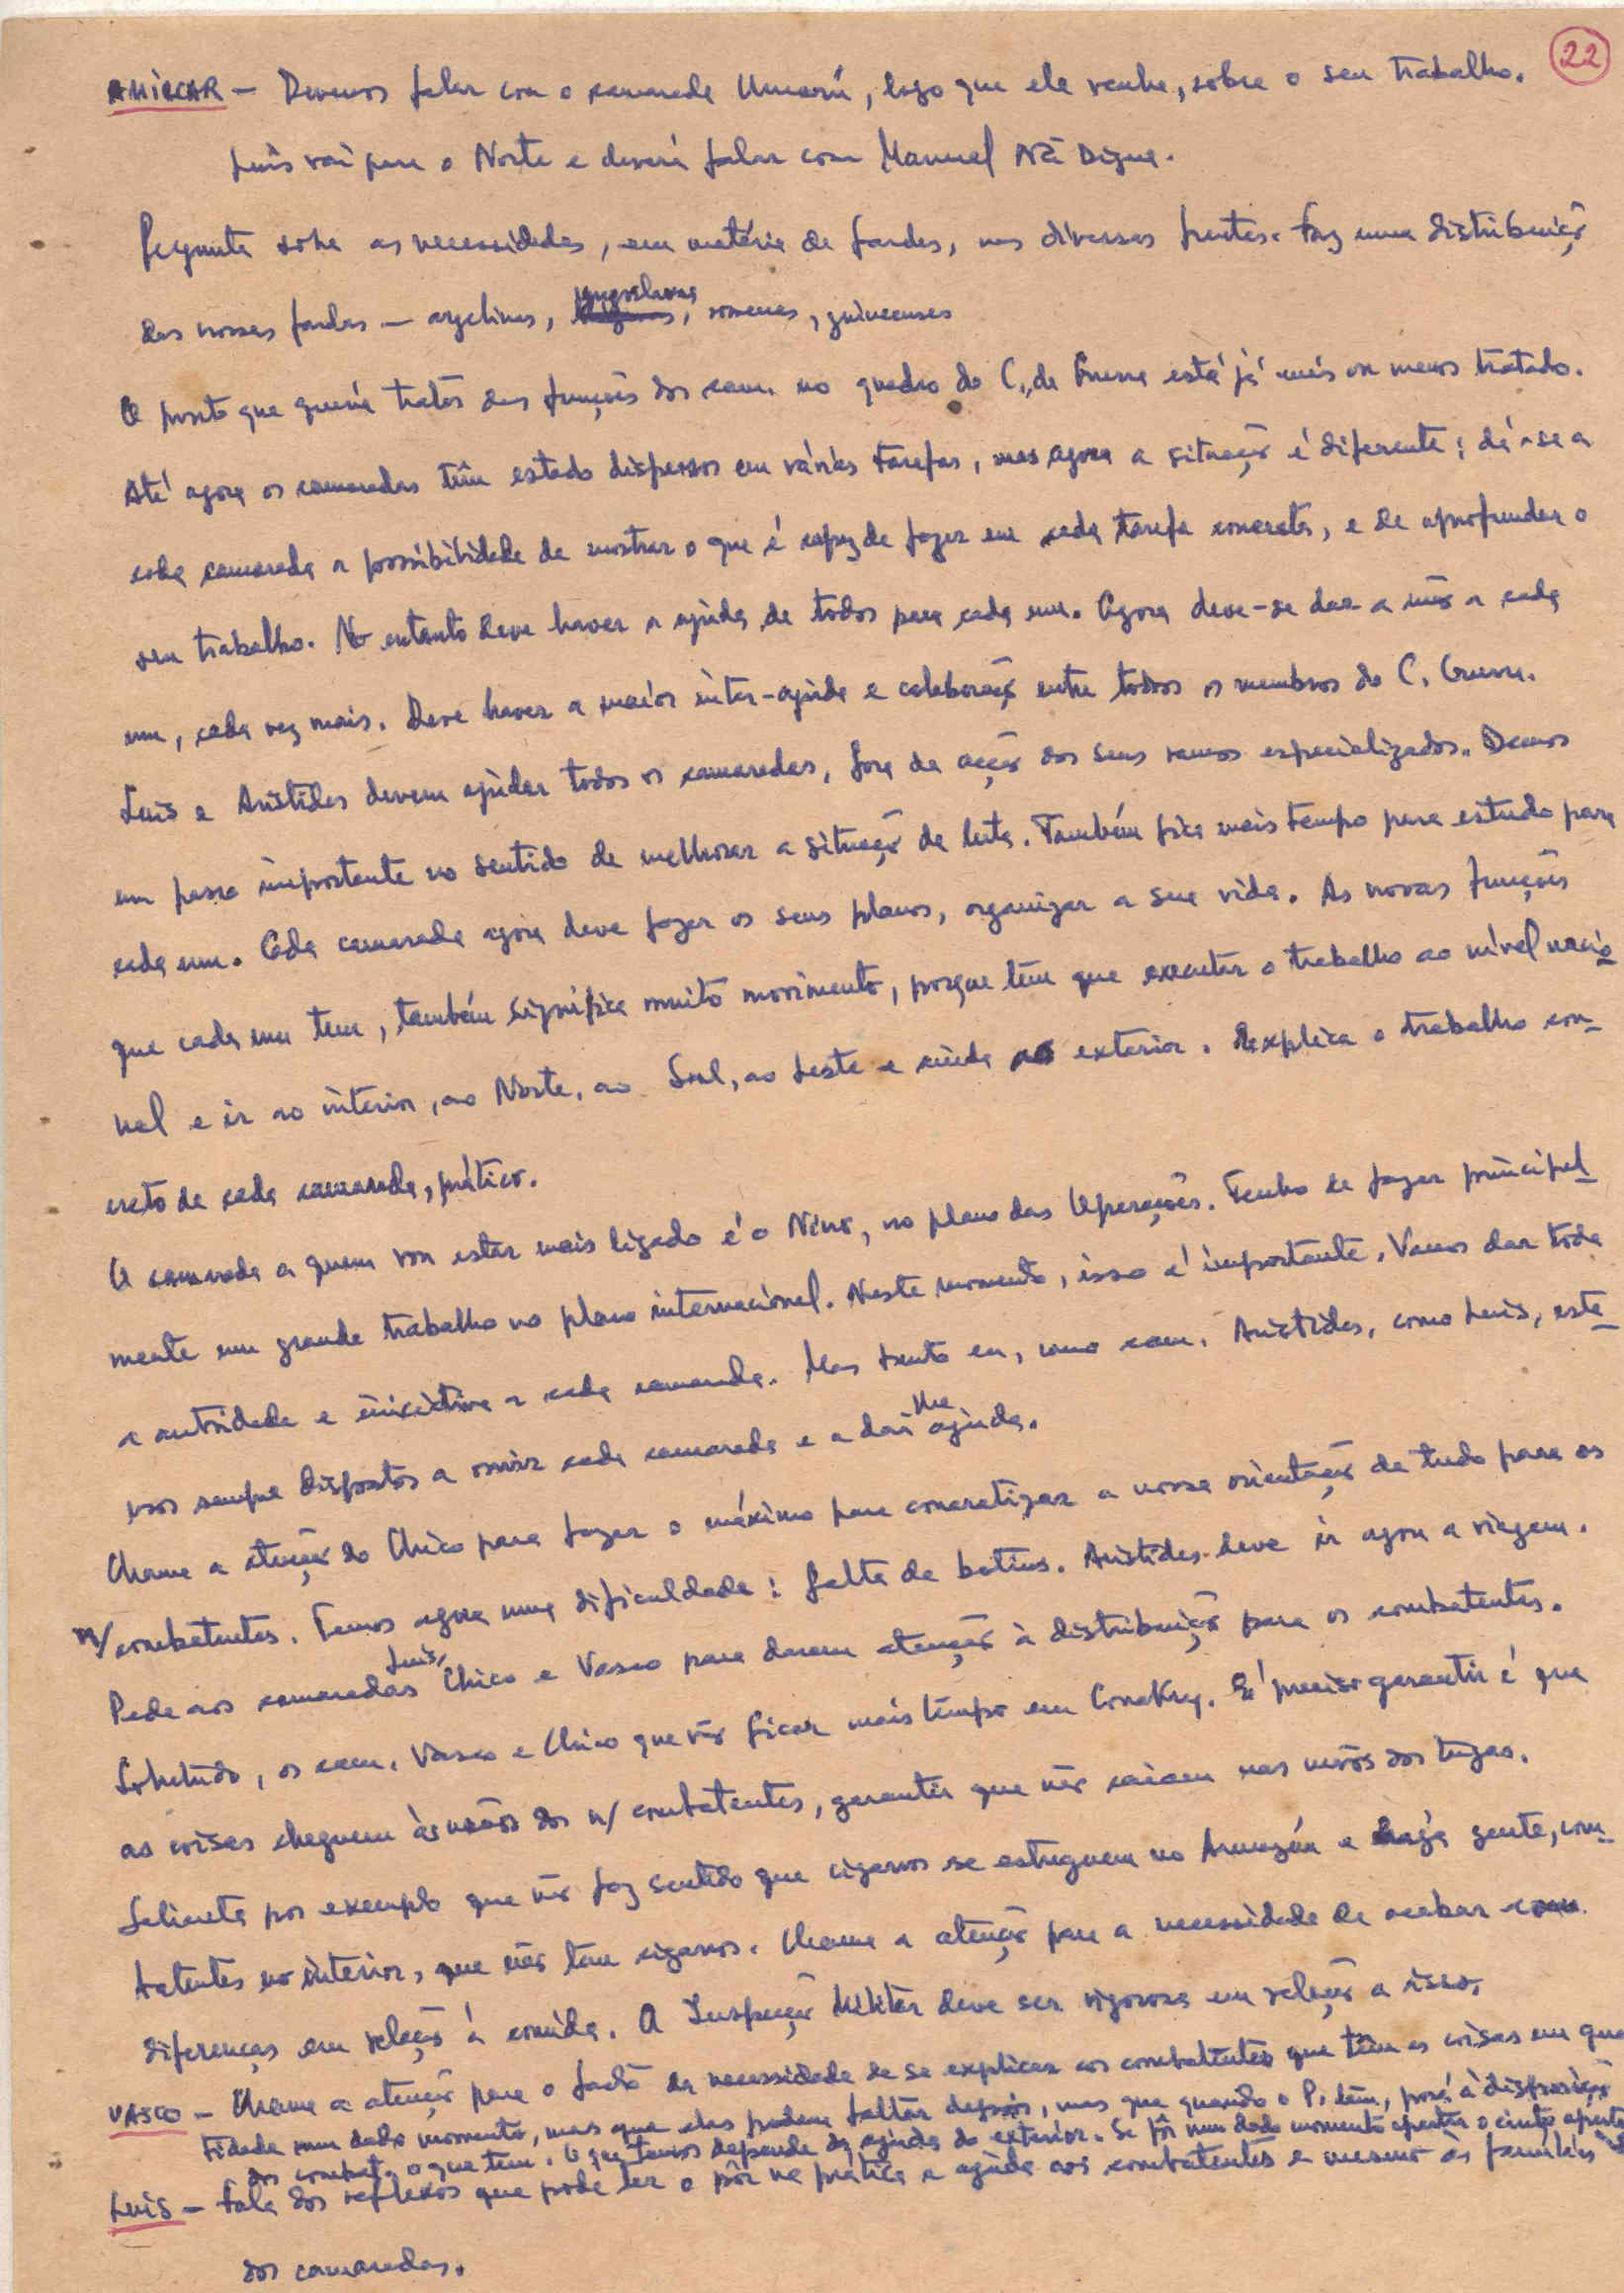 22
AMÍLCAR — Devemos falar com o camarada Umarú, logo que ele venha, sobre o seu trabalho.
Luís vai para o Norte e deverá falar com Manuel Nã Digna.
Pergunta sobre as necessidades, em matéria de fardas, nas diversas frentes. Faz uma distribuiçõ
das nossas fardas — argelinas, yugoslavas, romenas, guineenses
O ponto que queria tratar das funções dos cam. no quadro do C. de Guerra está já mais ou menos tratado.
Até agora os camaradas têm estado dispersos em várias tarefas, mas agora a situaçõ é diferente: dá-se a
cada camarada a possibilidade de mostrar o que é capaz de fazer em cada tarefa concreta, e de aprofundar o
seu trabalho. No entanto deve haver a ajuda de todos para cada um. Agora deve-se dar a mão a cada
um, cada vez mais. Deve haver a maior inter-ajuda e colaboraçõ entre todos os membros do C. Guerra.
Luís e Aristides devem ajudar todos os camaradas, fora da acçõ dos seus ramos especializados. Demos
um passo importante no sentido de melhorar a situaçõ da luta. Também fica mais tempo para estudo para
cada um. Cada camarada agora deve fazer os seus planos, organizar a sua vida. As novas funções
que cada um tem, também significa muito movimento, porque têm que executar o trabalho ao nível nacio
nal e ir ao interior, ao Norte, ao Sul, ao Leste e ainda ao exterior. Explica o trabalho con-
creto de cada camarada, prático.
O camarada a quem vou estar mais ligado é o Nino, no plano das Operações. Tenho de fazer principal
mente um grande trabalho no plano internacional. Neste momento, isso é importante. Vamos dar toda
a autoridade e iniciativa a cada camarada. Mas tanto eu, como cam. Aristides, como Luís, esta
mos sempre dispostos a ouvir cada camarada e a dar lhe ajuda.
Chama a atençõ do Chico para fazer o máximo para concretizar a nossa orientaçõ de tudo para os
n/ combatentes. Temos agora uma dificuldade: falta de botins. Aristides deve ir agora a viagem.
Pede aos camaradas Luís, Chico e Vasco para darem atençõ à distribuiçõ para os combatentes.
Sobretudo, os cam. Vasco e Chico que vão ficar mais tempo em Conakry. É preciso garantir é que
as coisas cheguem às mãos dos n/ combatentes, garantir que não caiam nas mãos dos tugas.
Salienta por exemplo que não faz sentido que cigarros se estraguem no Armazém e haja gente, com-
batentes no interior, que não têm cigarros. Chama a atençõ para a necessidade de acabar com
diferenças em relaçõ à comida. A Inspecçõ Militar deve ser rigorosa em relaçõ a isso.
VASCO — Chama a atençõ para o facto da necessidade de se explicar aos combatentes que têm as coisas em quan
tidade num dado momento, mas que elas podem faltar depois, mas que quando o P. têm, porá à disposiçõ
dos combat. o que tem. O que temos depende da ajuda do exterior. Se fôr num dado momento apertar o cinto aperta
LUIS — Fala dos reflexos que pode ter o pôr na prática a ajuda aos combatentes e mesmo às famílias
dos camaradas.